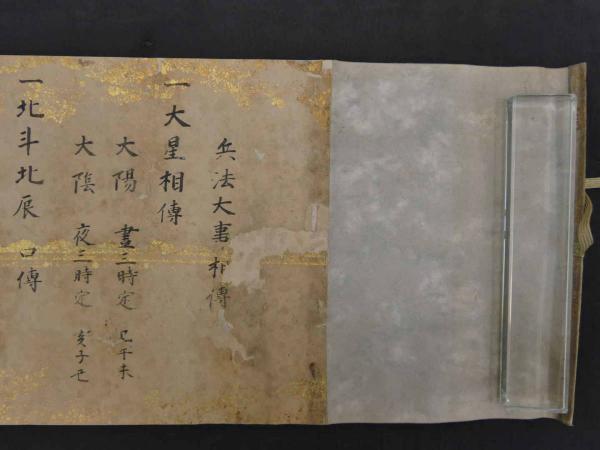 兵法大事相傳
一大星相傳
大陽 晝三時定 巳午未
大陰 夜三時定 亥子丑
一北斗北辰 口傳